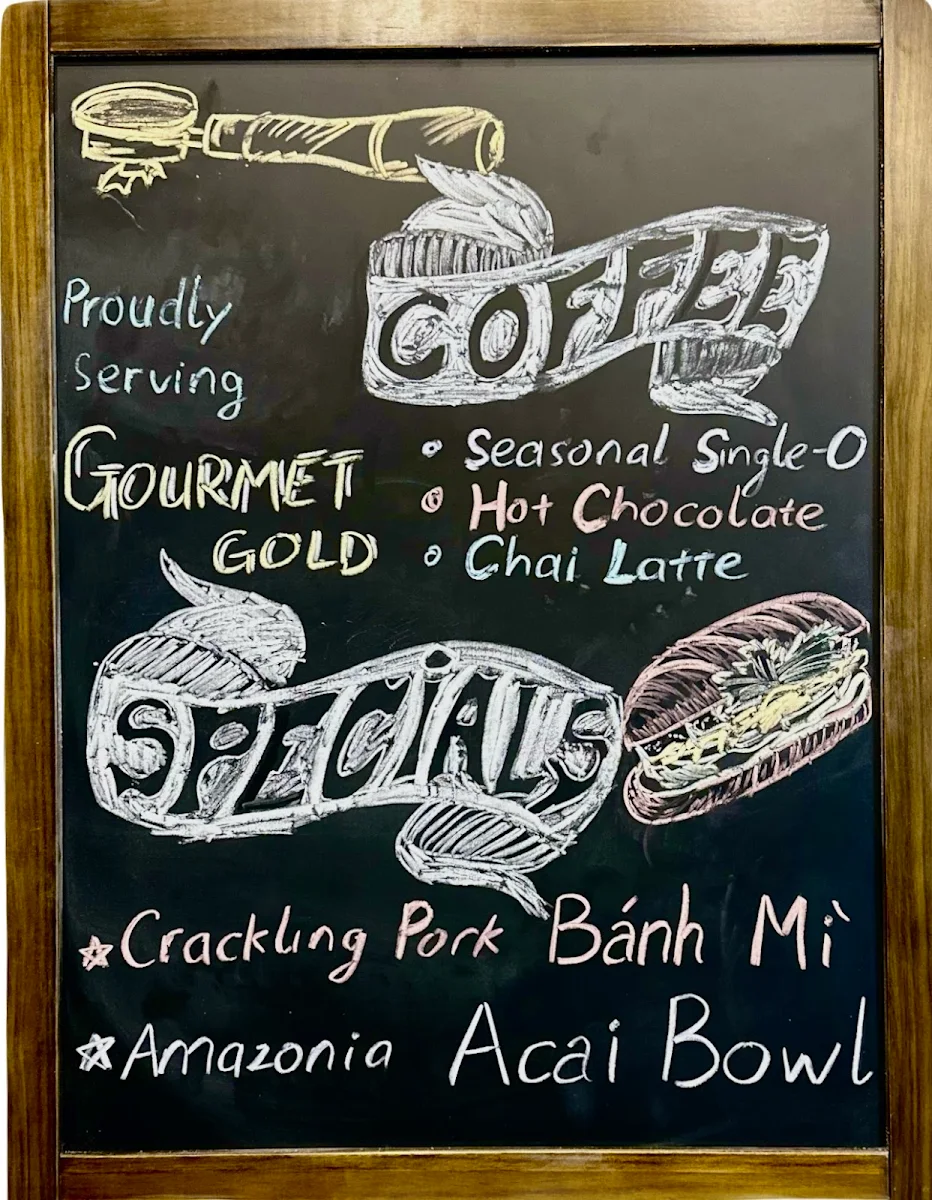 COFFEE
Proudly
Serving
GOURMET
GOLD
• Seasonal Single-O
• Hot Chocolate
• Chai Latte
SPECIALS
☆ Crackling Pork Bánh Mì
☆ Amazonia Acai Bowl